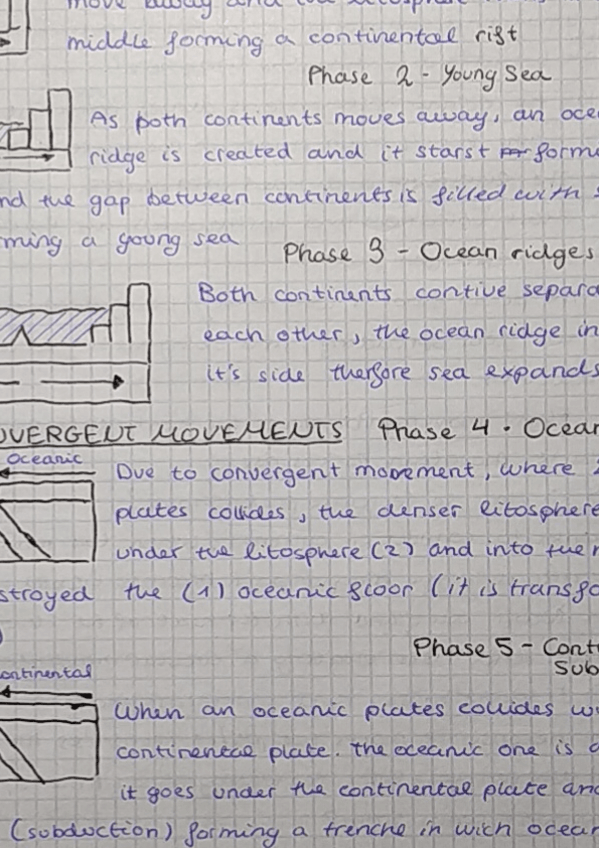 move away and
middle forming a continental rift
Phase 2 - Young Sea
As both continents moves away, an oce
ridge is created and it starst form
nd the gap between continents is filled with s
ming a young sea
Phase 3 - Ocean ridges
Both continents contive separa
each other, the ocean ridge in
it's side therfore sea expands
OVERGENT MOVEMENTS
Phase 4 · Ocean
Oceanic
Due to convergent movement, where 2
plates collides, the denser litosphere
under the litosphere (2) and into the
stroyed the (1) oceanic floor (it is transfo
)
Phase 5 - Cont
Sub
ontinental
When an oceanic plates collides w
continental plate. the oceanic one is d
it goes under the continental plate and
(subduction) forming a trenche in wich ocean